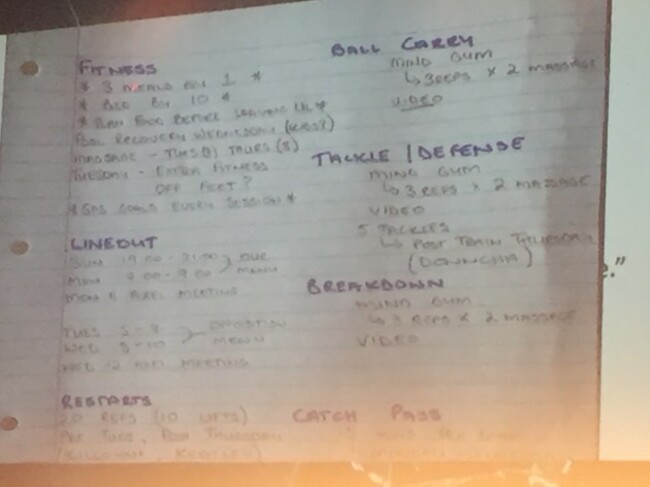 FITNESS
* 3 MEALS BY 1 *
* BED BY 10 *
BEFORE
POOL RECOVERY WEDNESDAY
MASSAGE - TUES THURS (8)
TUESDAY - EXTRA FITNESS
OFF FEET?
* GPS GOALS EVERY SESSION *
LINEOUT
SUN 19:00 - 21:00 } OUR
MON 7:00 - 9:00 MENU
MON 11 AM MEETING
TUES 5-8 } OPPOSITION
WED 8-10 MENU
WED 12 MEETING
RESTARTS
20 REPS (10 LIFTS)
TUES, THURSDAY
BALL CARRY
MIND GUM
↳ 3 REPS X 2 MASSAGE
VIDEO
TACKLE / DEFENSE
MIND GUM
↳ 3 REPS X 2 MASSAGE
VIDEO
5 TACKLES
↳ POST TRAIN THURSDAY
(DONNCHA)
BREAKDOWN
MIND GUM
↳ 3 REPS X 2 MASSAGE
VIDEO
CATCH PASS
."